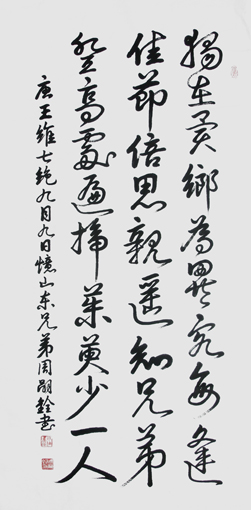 獨在異鄉為異客每逢
佳節倍思親遥知兄弟
登高處遍插茱萸少一人
唐王維七絶九月九日憶山東兄弟周嗣銓書